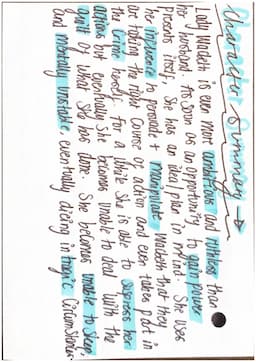 Character Summary →
Lady Macbeth is even more ambitious and ruthless than
her husband. To soar as an opportunity to gain power
presents itself, she has an idea/plan in mind. She uses
her influence to persuade + manipulate Macbeth that they
are taking the right course of action and even takes part in
the crime herself. For a while she is able to suppress her
actions but eventually she becomes unable to deal with the
guilt of what she has done. She becomes unable to sleep
and mentally unstable, eventually dieing in tragic circumstances.